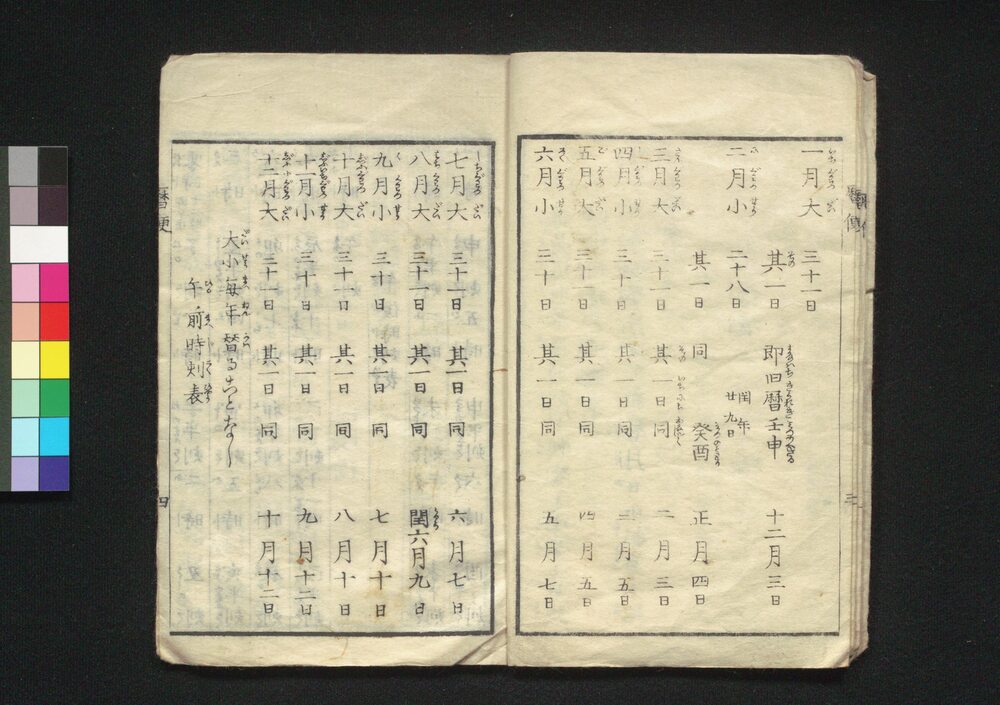 一月大 三十一日
其一日 即旧暦壬申 十二月三日
二月小 二十八日 閏年 廿九日
其一日 同 癸酉 正月四日
三月大 三十一日 其一日 同 二月三日
四月小 三十日 其一日 同 三月五日
五月大 三十一日 其一日 同 四月五日
六月小 三十日 其一日 同 五月七日
七月大 三十一日 其一日 同 六月七日
八月大 三十一日 其一日 同 閏六月九日
九月小 三十日 其一日 同 七月十日
十月大 三十一日 其一日 同 八月十日
十一月小 三十日 其一日 同 九月十二日
十二月大 三十一日 其一日 同 十月十二日
大小毎年替ることなし
午前時刻表
四